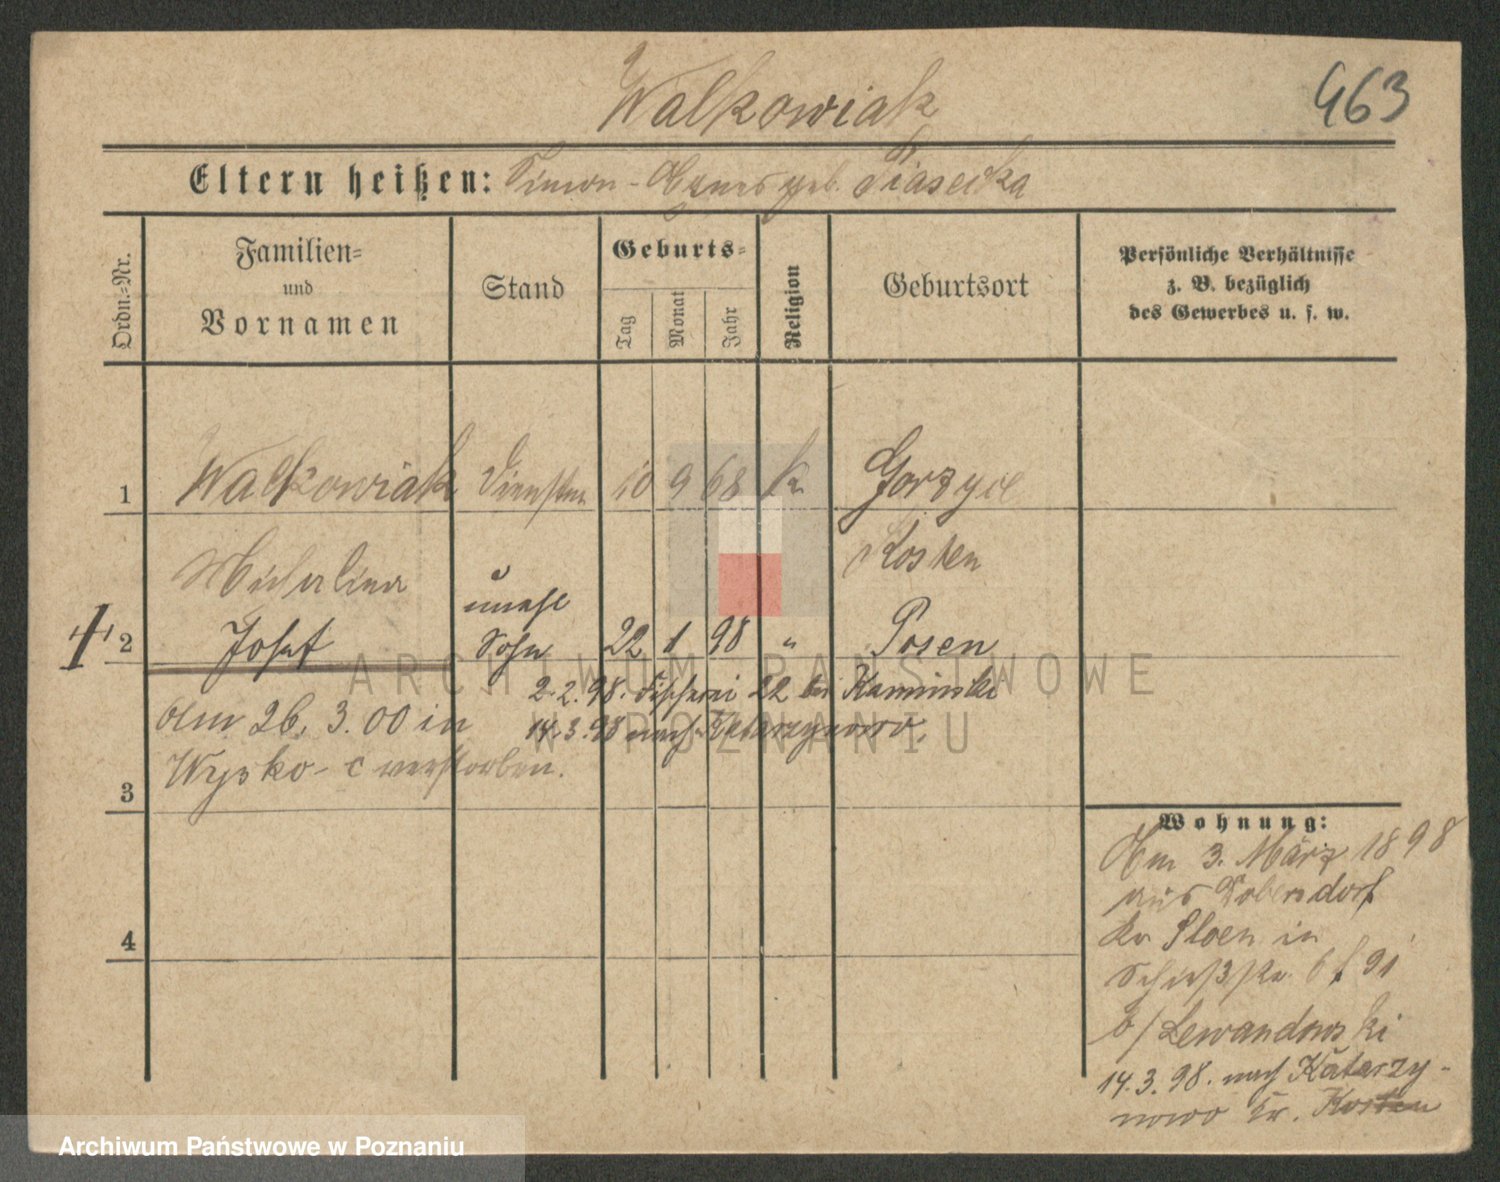 Walkowiak
463
Eltern heißen: Simon - Agnes geb. Piasecka
Ordn.-Nr.
Familien- und Vornamen
Stand
Geburts-
Tag
Monat
Jahr
Religion
Geburtsort
Persönliche Verhältnisse
z. B. bezüglich
des Gewerbes u. s. w.
1 Walkowiak 10 9 68 k Gorzyce
Kosten
Michalina
unehl
2 Josef Sohn 22 1 98 " Posen
2.2.98. Fischerei 22 bei Kaminski
am 26. 3. 00 in
14.3.98 nach Katarzynowo.
Wysko-c verstorben.
3
4
Wohnung:
Am 3. März 1898
aus Dobersdorf
Kr Ploen in
Schießstr. 6 f 91
b/ Lewandowski
14.3.98. nach Katarzy-
nowo Kr. Kosten
ARCHIWUM PAŃSTWOWE
W POZNANIU
Archiwum Państwowe w Poznaniu